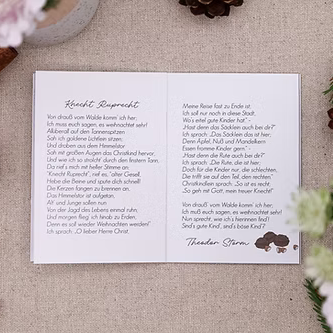 Knecht Ruprecht
Von drauß' vom Walde komm' ich her;
Ich muss euch sagen, es weihnachtet sehr!
Allüberall auf den Tannenspitzen
Sah ich goldene Lichtlein sitzen;
Und droben aus dem Himmelstor
Sah mit großen Augen das Christkind hervor,
Und wie ich so strolcht' durch den finstern Tann,
Da rief's mich mit heller Stimme an:
"Knecht Ruprecht", rief es, "alter Gesell,
Hebe die Beine und spute dich schnell!
Die Kerzen fangen zu brennen an,
Das Himmelstor ist aufgetan,
Alt' und Junge sollen nun
Von der Jagd des Lebens einmal ruhn;
Und morgen flieg' ich hinab zu Erden,
Denn es soll wieder Weihnachten werden!"
Ich sprach: "O lieber Herre Christ,
Meine Reise fast zu Ende ist;
Ich soll nur noch in diese Stadt,
Wo's eitel gute Kinder hat". –
"Hast denn das Säcklein auch bei dir?"
Ich sprach: "Das Säcklein das ist hier:
Denn Äpfel, Nuß und Mandelkern
Essen fromme Kinder gern". –
"Hast denn die Rute auch bei dir?"
Ich sprach: "Die Rute, die ist hier;
Doch für die Kinder nur, die schlechten,
Die trifft sie auf den Teil, den rechten."
Christkindlein sprach: "So ist es recht;
So geh mit Gott, mein treuer Knecht!"
Von drauß' vom Walde komm' ich her;
Ich muß euch sagen, es weihnachtet sehr!
Nun sprecht, wie ich's hierinnen find'!
Sind's gute Kind', sind's böse Kind'?
Theodor Storm